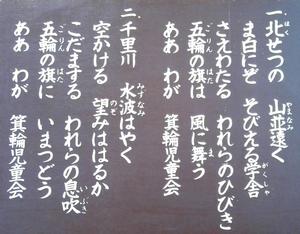 一、北せつの 山並遠く
ま白にぞ そびえる学舎
さえわたる われらのひびき
五輪の旗は 風に舞う
ああ わが 箕輪児童会
二、千里川 水波はやく
空かける 望みははるか
こだまする われらの息吹
五輪の旗に いまつどう
ああ わが 箕輪児童会